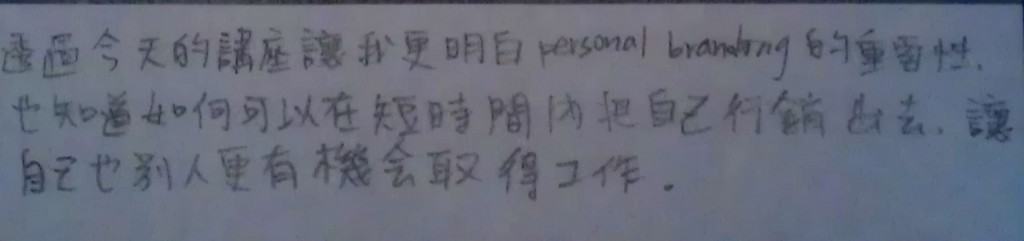 透過今天的講座讓我更明白 personal branding 的重要性.
也知道如何可以在短時間內把自己行銷出去. 讓
自己也別人更有機会取得工作.